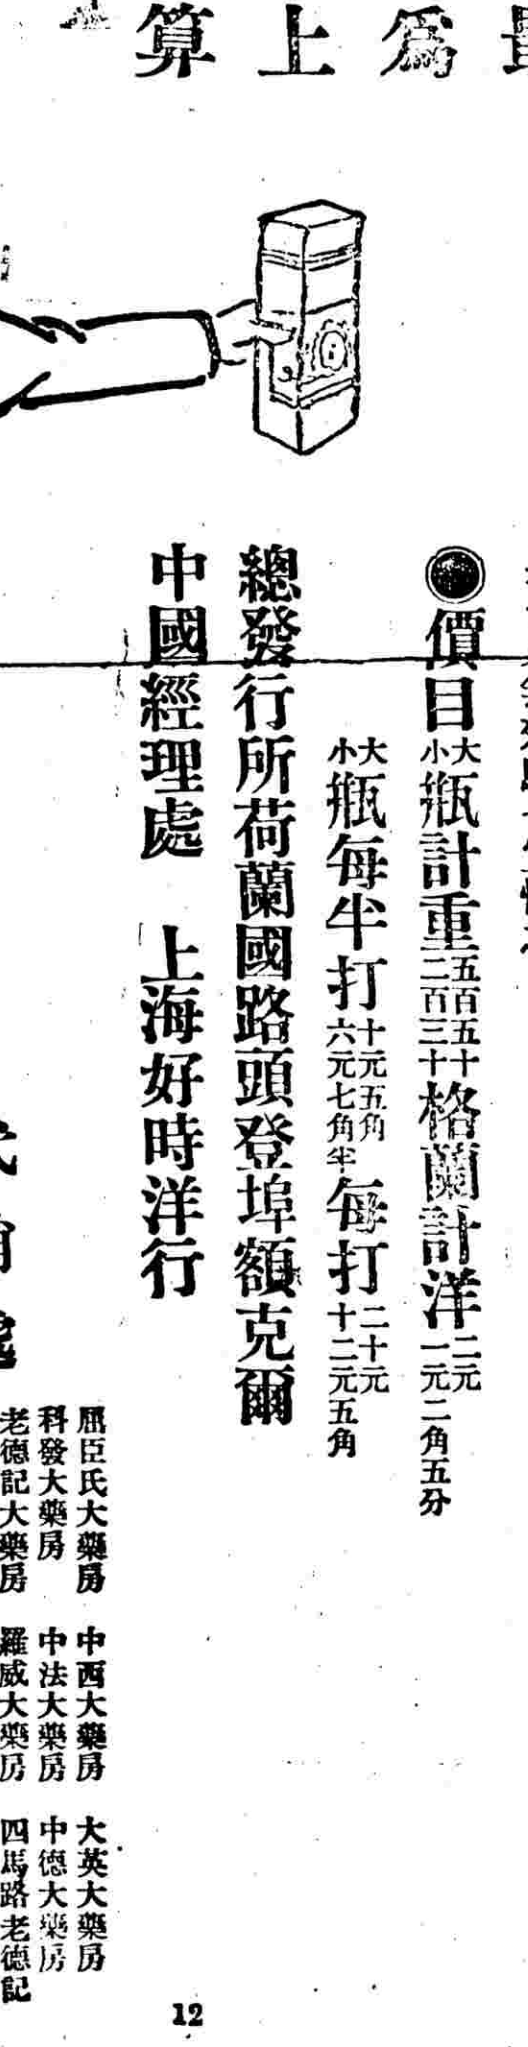 爲上算
●價目大小瓶計重五百五十二百三十格蘭計洋二元一元二角五分
大小瓶每半打十元五角六元七角半每打二十元十二元五角
總發行所荷蘭國路頭登埠額克爾
中國經理處 上海好時洋行
屈臣氏大藥房 中西大藥房 大英大藥房
科發大藥房 中法大藥房 中德大藥房
老德記大藥房 羅威大藥房 四馬路老德記
12